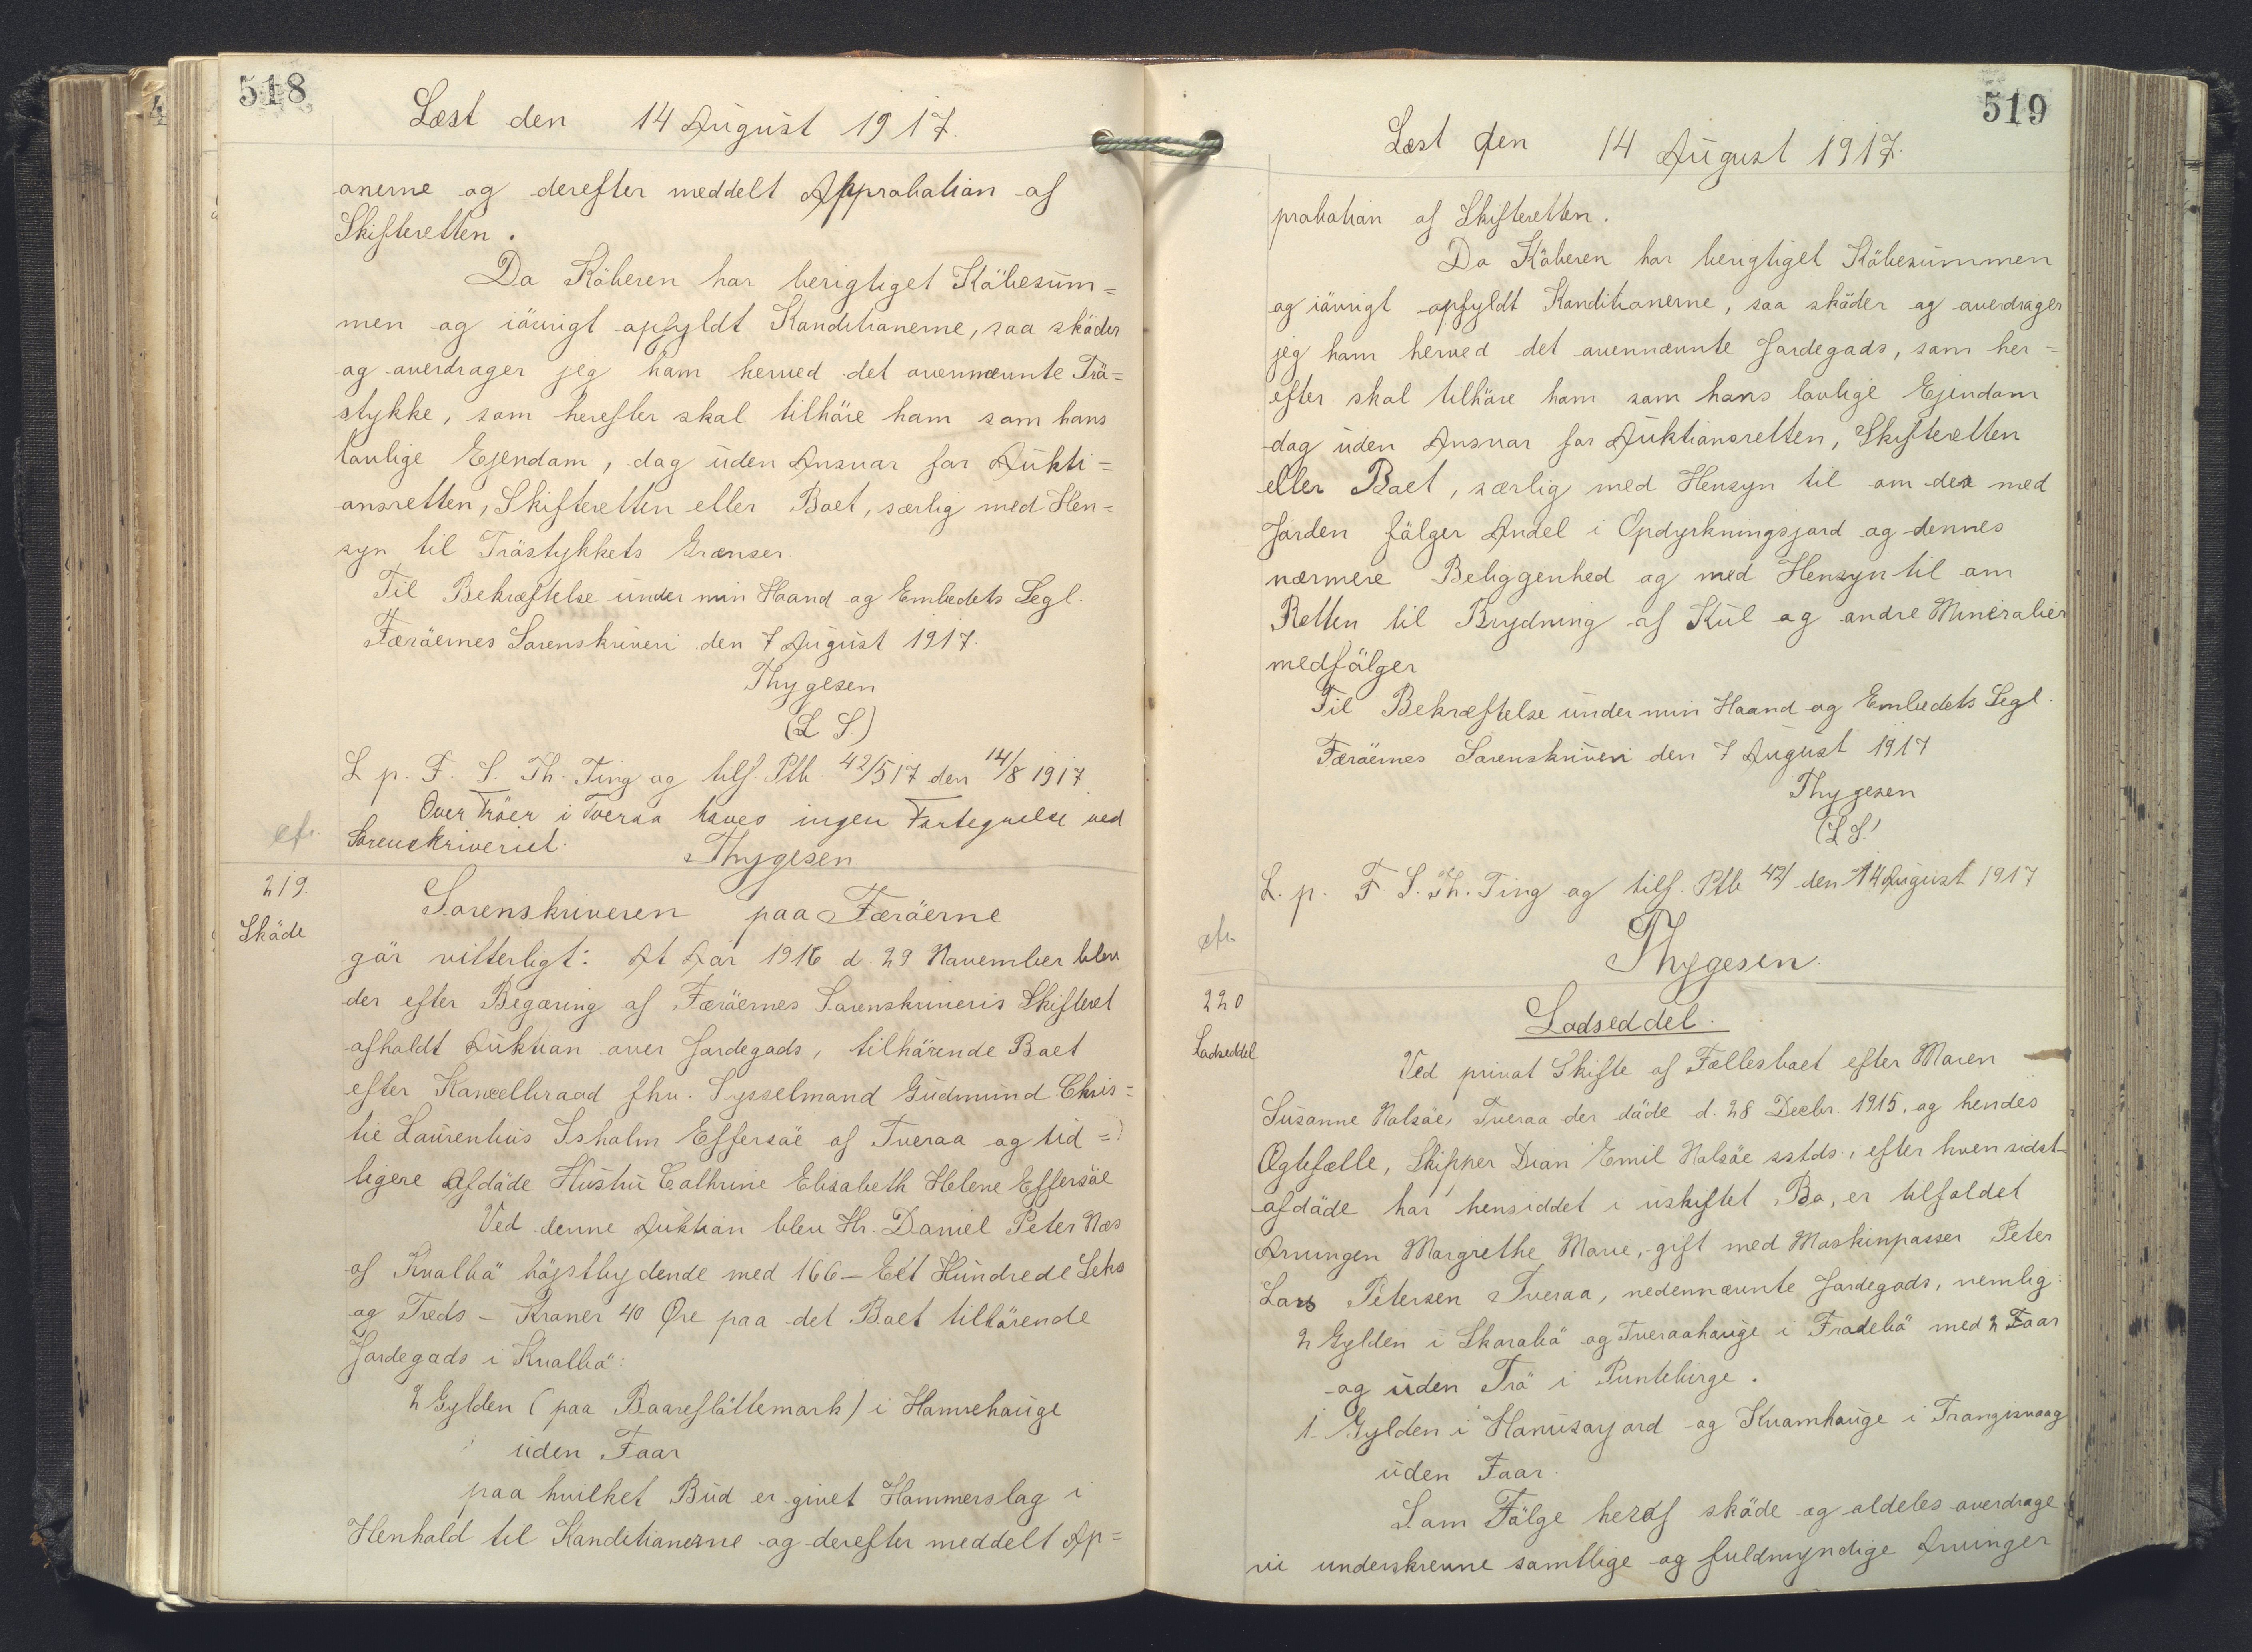 518
Læst den 14 August 1917.
onerne og derefter meddelt Approbation af
Skifteretten.
Da Köberen har berigtiget Köbesum=
men og iövrigt opfyldt Konditionerne, saa sköder
og overdrager jeg ham herved det ovennævnte Trö=
stykke, som herefter skal tilhöre ham som hans
lovlige Ejendom, dog uden Ansvar for Aukti=
onsretten, Skifteretten eller Boet, særlig med Hen=
syn til Tröstykkets Grænser.
Til Bekræftelse under min Haand og Embedets Segl.
Færöernes Sorenskriveri den 7 August 1917.
Thygesen
(L S.)
L p. F. S. Th. Ting og tilf. Ptb. 42/517 den 14/8 1917.
Over Tröer i Tveraa haves ingen Fortegnelse ved
cfr. Sorenskriveriet. Thygesen.
219.
Sköde
Sorenskriveren paa Færöerne
gör vitterligt: At Aar 1916 d. 29 November blev
der efter Begæring af Færöernes Sorenskriveris Skifteret
afholdt Auktion over Jordegods, tilhörende Boet
efter Kancelliraad fhv. Sysselmand Gudmund Chris=
tie Laurentius Isholm Effersöe af Tveraa og tid=
ligere afdöde Hustru Cathrine Elisabeth Helene Effersöe
Ved denne Auktion blev Hr. Daniel Peter Næs
af Kvalbö höjstbydende med 166 – Eet Hundrede Seks
og Treds – Kroner 40 Øre paa det Boet tilhörende
Jordegods i Kvalbö:
2 Gylden (paa Baareflöttemark) i Hamrehauge
uden Faar
paa hvilket Bud er givet Hammerslag i
Henhold til Konditionerne og derefter meddelt Ap=
519
Læst den 14 August 1917.
probation af Skifteretten.
Da Köberen har berigtiget Köbesummen
og iövrigt opfyldt Konditionerne, saa sköder og overdrager
jeg ham herved det ovennævnte Jordegods, som her=
efter skal tilhöre ham som hans lovlige Ejendom
dog uden Ansvar for Auktionsretten, Skifteretten
eller Boet, særlig med Hensyn til om der med
Jorden fölger Andel i Opdyrkningsjord og dennes
nærmere Beliggenhed og med Hensyn til om
Retten til Brydning af Kul og andre Mineralier
medfölger
Til Bekræftelse under min Haand og Embedets Segl.
Færöernes Sorenskriveri den 7 August 1917
Thygesen
(L S.)
L. p. F. S. Th. Ting og tilf. Ptb 42/ den 14 August 1917
cfr.
Thygesen.
220
Lodseddel
Lodseddel.
Ved privat Skifte af Fællesboet efter Maren
Susanne Nolsöe, Tveraa der döde d. 28 Decbr. 1915, og hendes
Ægtefælle, Skipper Dion Emil Nolsöe sstds., efter hven sidst-
afdöde har hensiddet i uskiftet Bo, er tilfaldet
Arvingen Margrethe Marie, gift med Maskinpasser Peter
Lars Petersen Tveraa, nedennævnte Jordegods, nemlig:
2 Gylden i Skarabö og Tveraahauge i Frodebö med 2 Faar
og uden Trö i Puntebirge.
1 Gylden i Hanusarjord og Kvamhauge i Trangisvaag
uden Faar.
Som Fölge heraf sköde og aldeles overdrage
vi underskrevne samtlige og fuldmyndige Arvinger